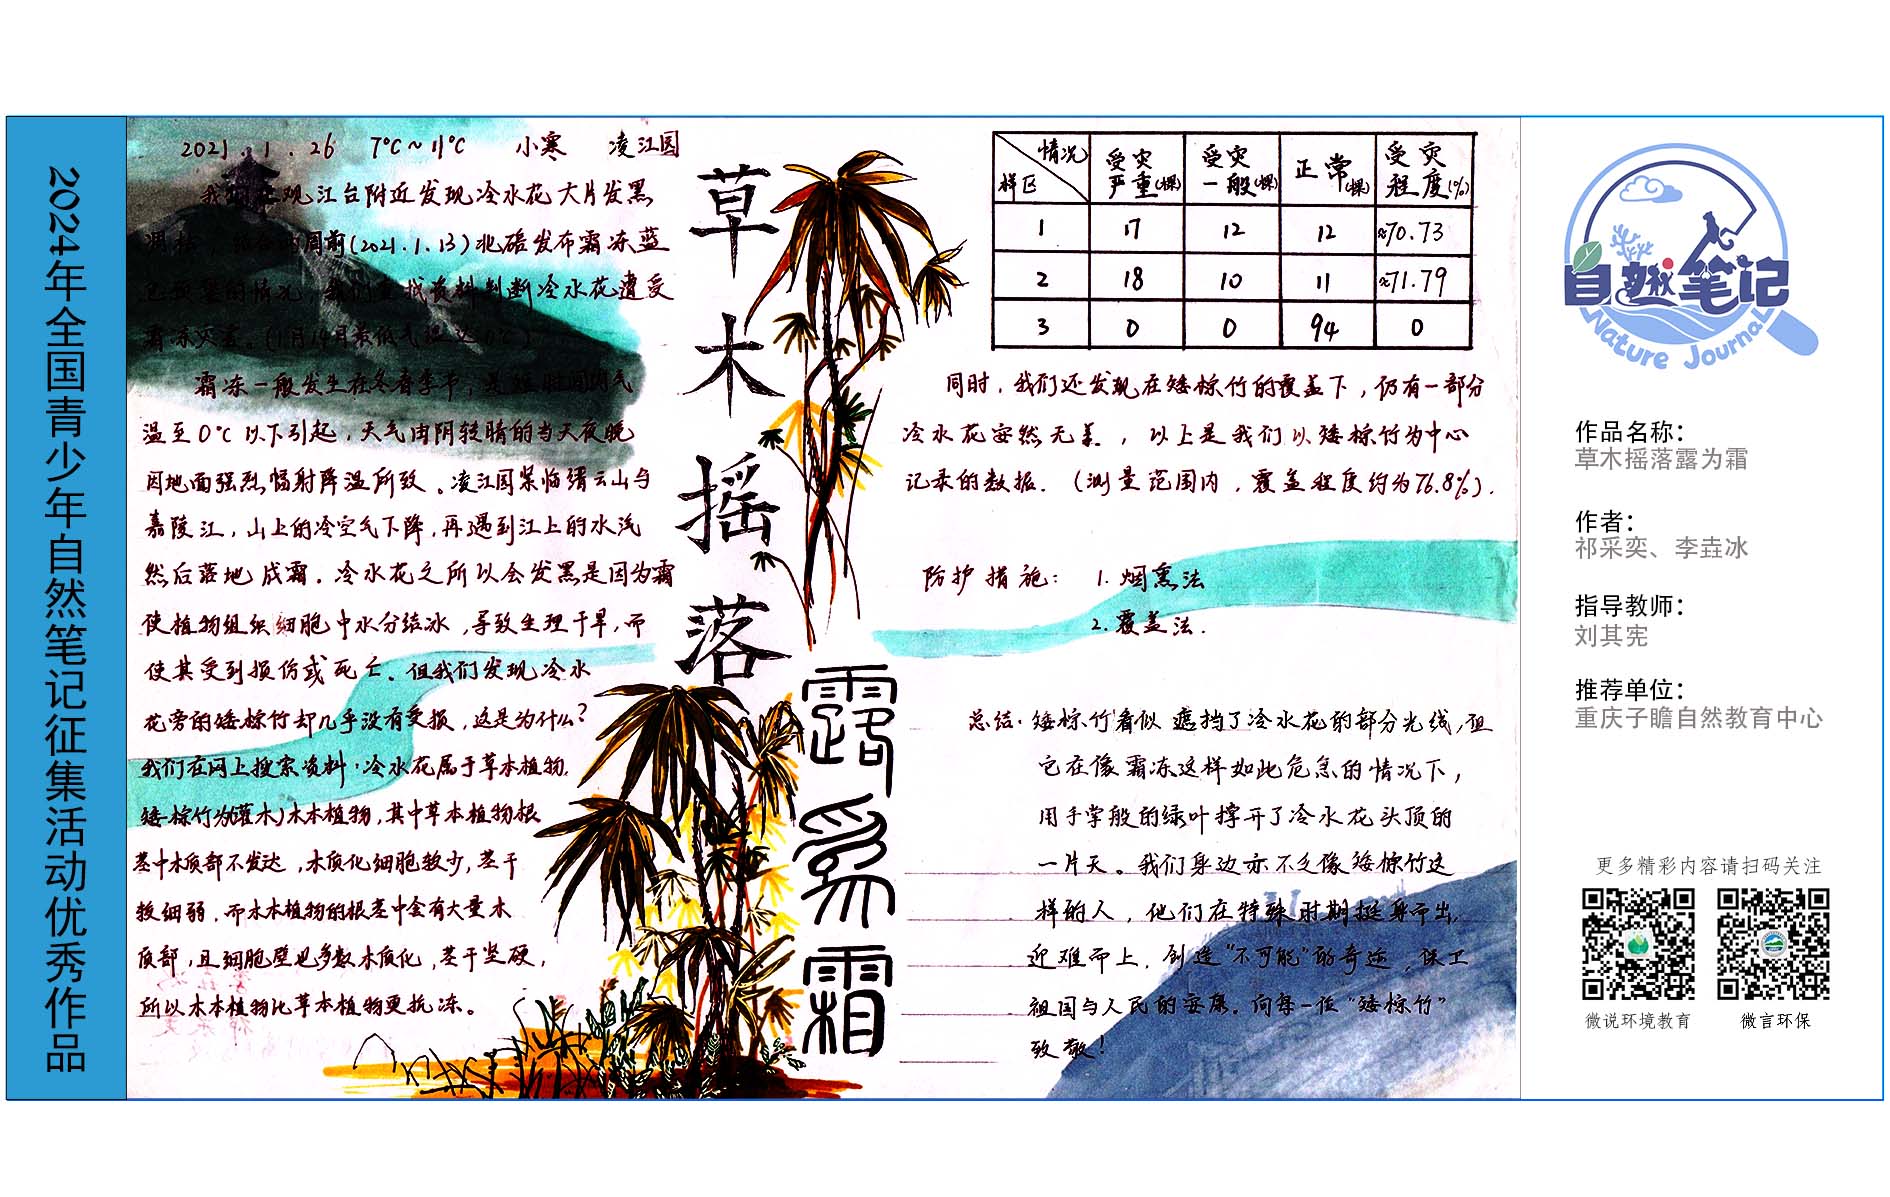 2024年全国青少年自然笔记征集活动优秀作品
2021.1.26 7℃~11℃ 小寒 凌江园
我们在观江台附近发现冷水花大片发黑
周前(2021.1.13)北碚发布霜冻蓝
色预警的情况,我们查找资料判断冷水花遭受
霜冻灾害。(1月14月最低气温达0℃)
霜冻一般发生在冬春季节,是短时间内气
温至0℃以下引起,天气由阴转晴的当天夜晚
因地面强烈辐射降温所致。凌江园紧临缙云山与
嘉陵江,山上的冷空气下降,再遇到江上的水汽
然后落地成霜。冷水花之所以会发黑是因为霜
使植物组织细胞中水分结冰,导致生理干旱,而
使其受到损伤或死亡。但我们发现冷水
花旁的矮棕竹却几乎没有受损,这是为什么?
我们在网上搜索资料·冷水花属于草本植物,
矮棕竹为(灌木)木本植物,其中草本植物根
茎中木质部不发达,木质化细胞较少,茎干
较细弱,而木本植物的根茎中会有大量木
质部,且细胞壁也多数木质化,茎干坚硬,
所以木本植物比草本植物更抗冻。
草木摇落
露為霜
情况 样区 受灾严重(棵) 受灾一般(棵) 正常(棵) 受灾程度(%)
1 17 12 12 ≈70.73
2 18 10 11 ≈71.79
3 0 0 94 0
同时,我们还发现在矮棕竹的覆盖下,仍有一部分
冷水花安然无恙,以上是我们以矮棕竹为中心
记录的数据.(测量范围内,覆盖程度约为76.8%).
防护措施: 1.烟熏法
2.覆盖法.
总结·矮棕竹看似遮挡了冷水花的部分光线,但
它在像霜冻这样如此危急的情况下,
用手掌般的绿叶撑开了冷水花头顶的
一片天。我们身边亦不乏像矮棕竹这
样的人,他们在特殊时期挺身而出,
迎难而上,创造“不可能”的奇迹,保卫
祖国与人民的安康。向每一位“矮棕竹”
致敬!
自然笔记
Nature Journal
作品名称:
草木摇落露为霜
作者:
祁采奕、李垚冰
指导教师:
刘其宪
推荐单位:
重庆子瞻自然教育中心
更多精彩内容请扫码关注
微说环境教育 微言环保